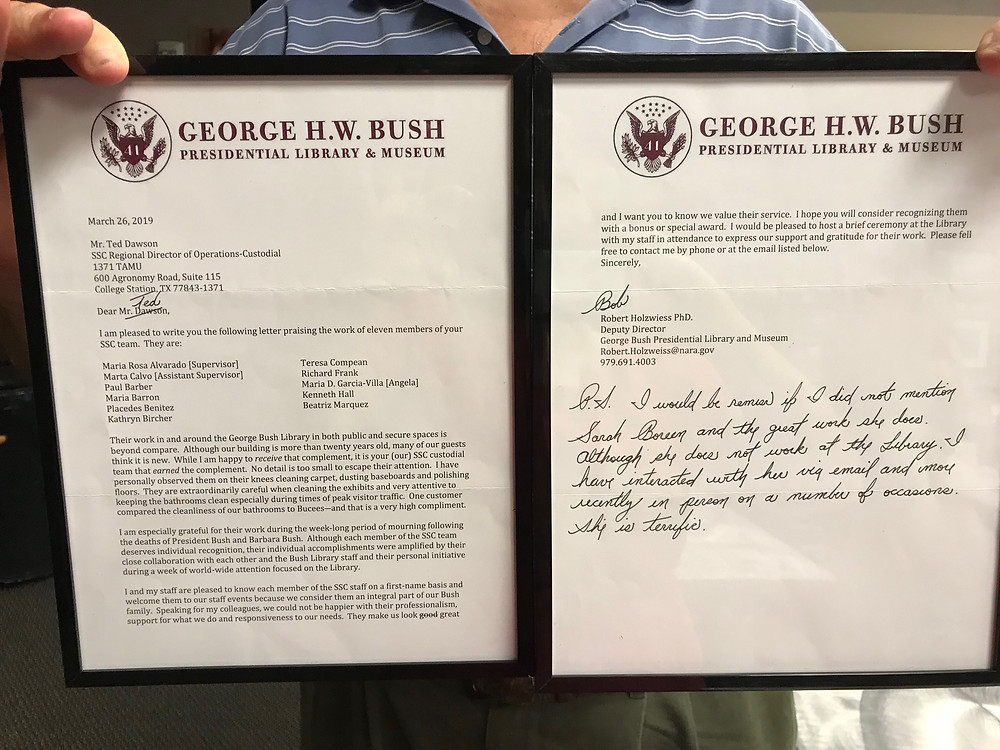 41
GEORGE H.W. BUSH
PRESIDENTIAL LIBRARY & MUSEUM
March 26, 2019
Mr. Ted Dawson
SSC Regional Director of Operations-Custodial
1371 TAMU
600 Agronomy Road, Suite 115
College Station, TX 77843-1371
Ted
Dear Mr. Dawson,
I am pleased to write you the following letter praising the work of eleven members of your
SSC team. They are:
Maria Rosa Alvarado [Supervisor]
Marta Calvo [Assistant Supervisor]
Paul Barber
Maria Barron
Placedes Benitez
Kathryn Bircher
Teresa Compean
Richard Frank
Maria D. Garcia-Villa [Angela]
Kenneth Hall
Beatriz Marquez
Their work in and around the George Bush Library in both public and secure spaces is
beyond compare. Although our building is more than twenty years old, many of our guests
think it is new. While I am happy to receive that complement, it is your (our) SSC custodial
team that earned the complement. No detail is too small to escape their attention. I have
personally observed them on their knees cleaning carpet, dusting baseboards and polishing
floors. They are extraordinarily careful when cleaning the exhibits and very attentive to
keeping the bathrooms clean especially during times of peak visitor traffic. One customer
compared the cleanliness of our bathrooms to Bucees—and that is a very high compliment.
I am especially grateful for their work during the week-long period of mourning following
the deaths of President Bush and Barbara Bush. Although each member of the SSC team
deserves individual recognition, their individual accomplishments were amplified by their
close collaboration with each other and the Bush Library staff and their personal initiative
during a week of world-wide attention focused on the Library.
I and my staff are pleased to know each member of the SSC staff on a first-name basis and
welcome them to our staff events because we consider them an integral part of our Bush
family. Speaking for my colleagues, we could not be happier with their professionalism,
support for what we do and responsiveness to our needs. They make us look good great
41
GEORGE H.W. BUSH
PRESIDENTIAL LIBRARY & MUSEUM
and I want you to know we value their service. I hope you will consider recognizing them
with a bonus or special award. I would be pleased to host a brief ceremony at the Library
with my staff in attendance to express our support and gratitude for their work. Please fell
free to contact me by phone or at the email listed below.
Sincerely,
Bob
Robert Holzwiess PhD.
Deputy Director
George Bush Presidential Library and Museum
Robert.Holzweiss@nara.gov
979.691.4003
P.S. I would be remiss if I did not mention
Sarah Boreen and the great work she does.
Although she does not work at the Library. I
have interacted with her via email and more
recently in person on a number of occasions.
She is terrific.